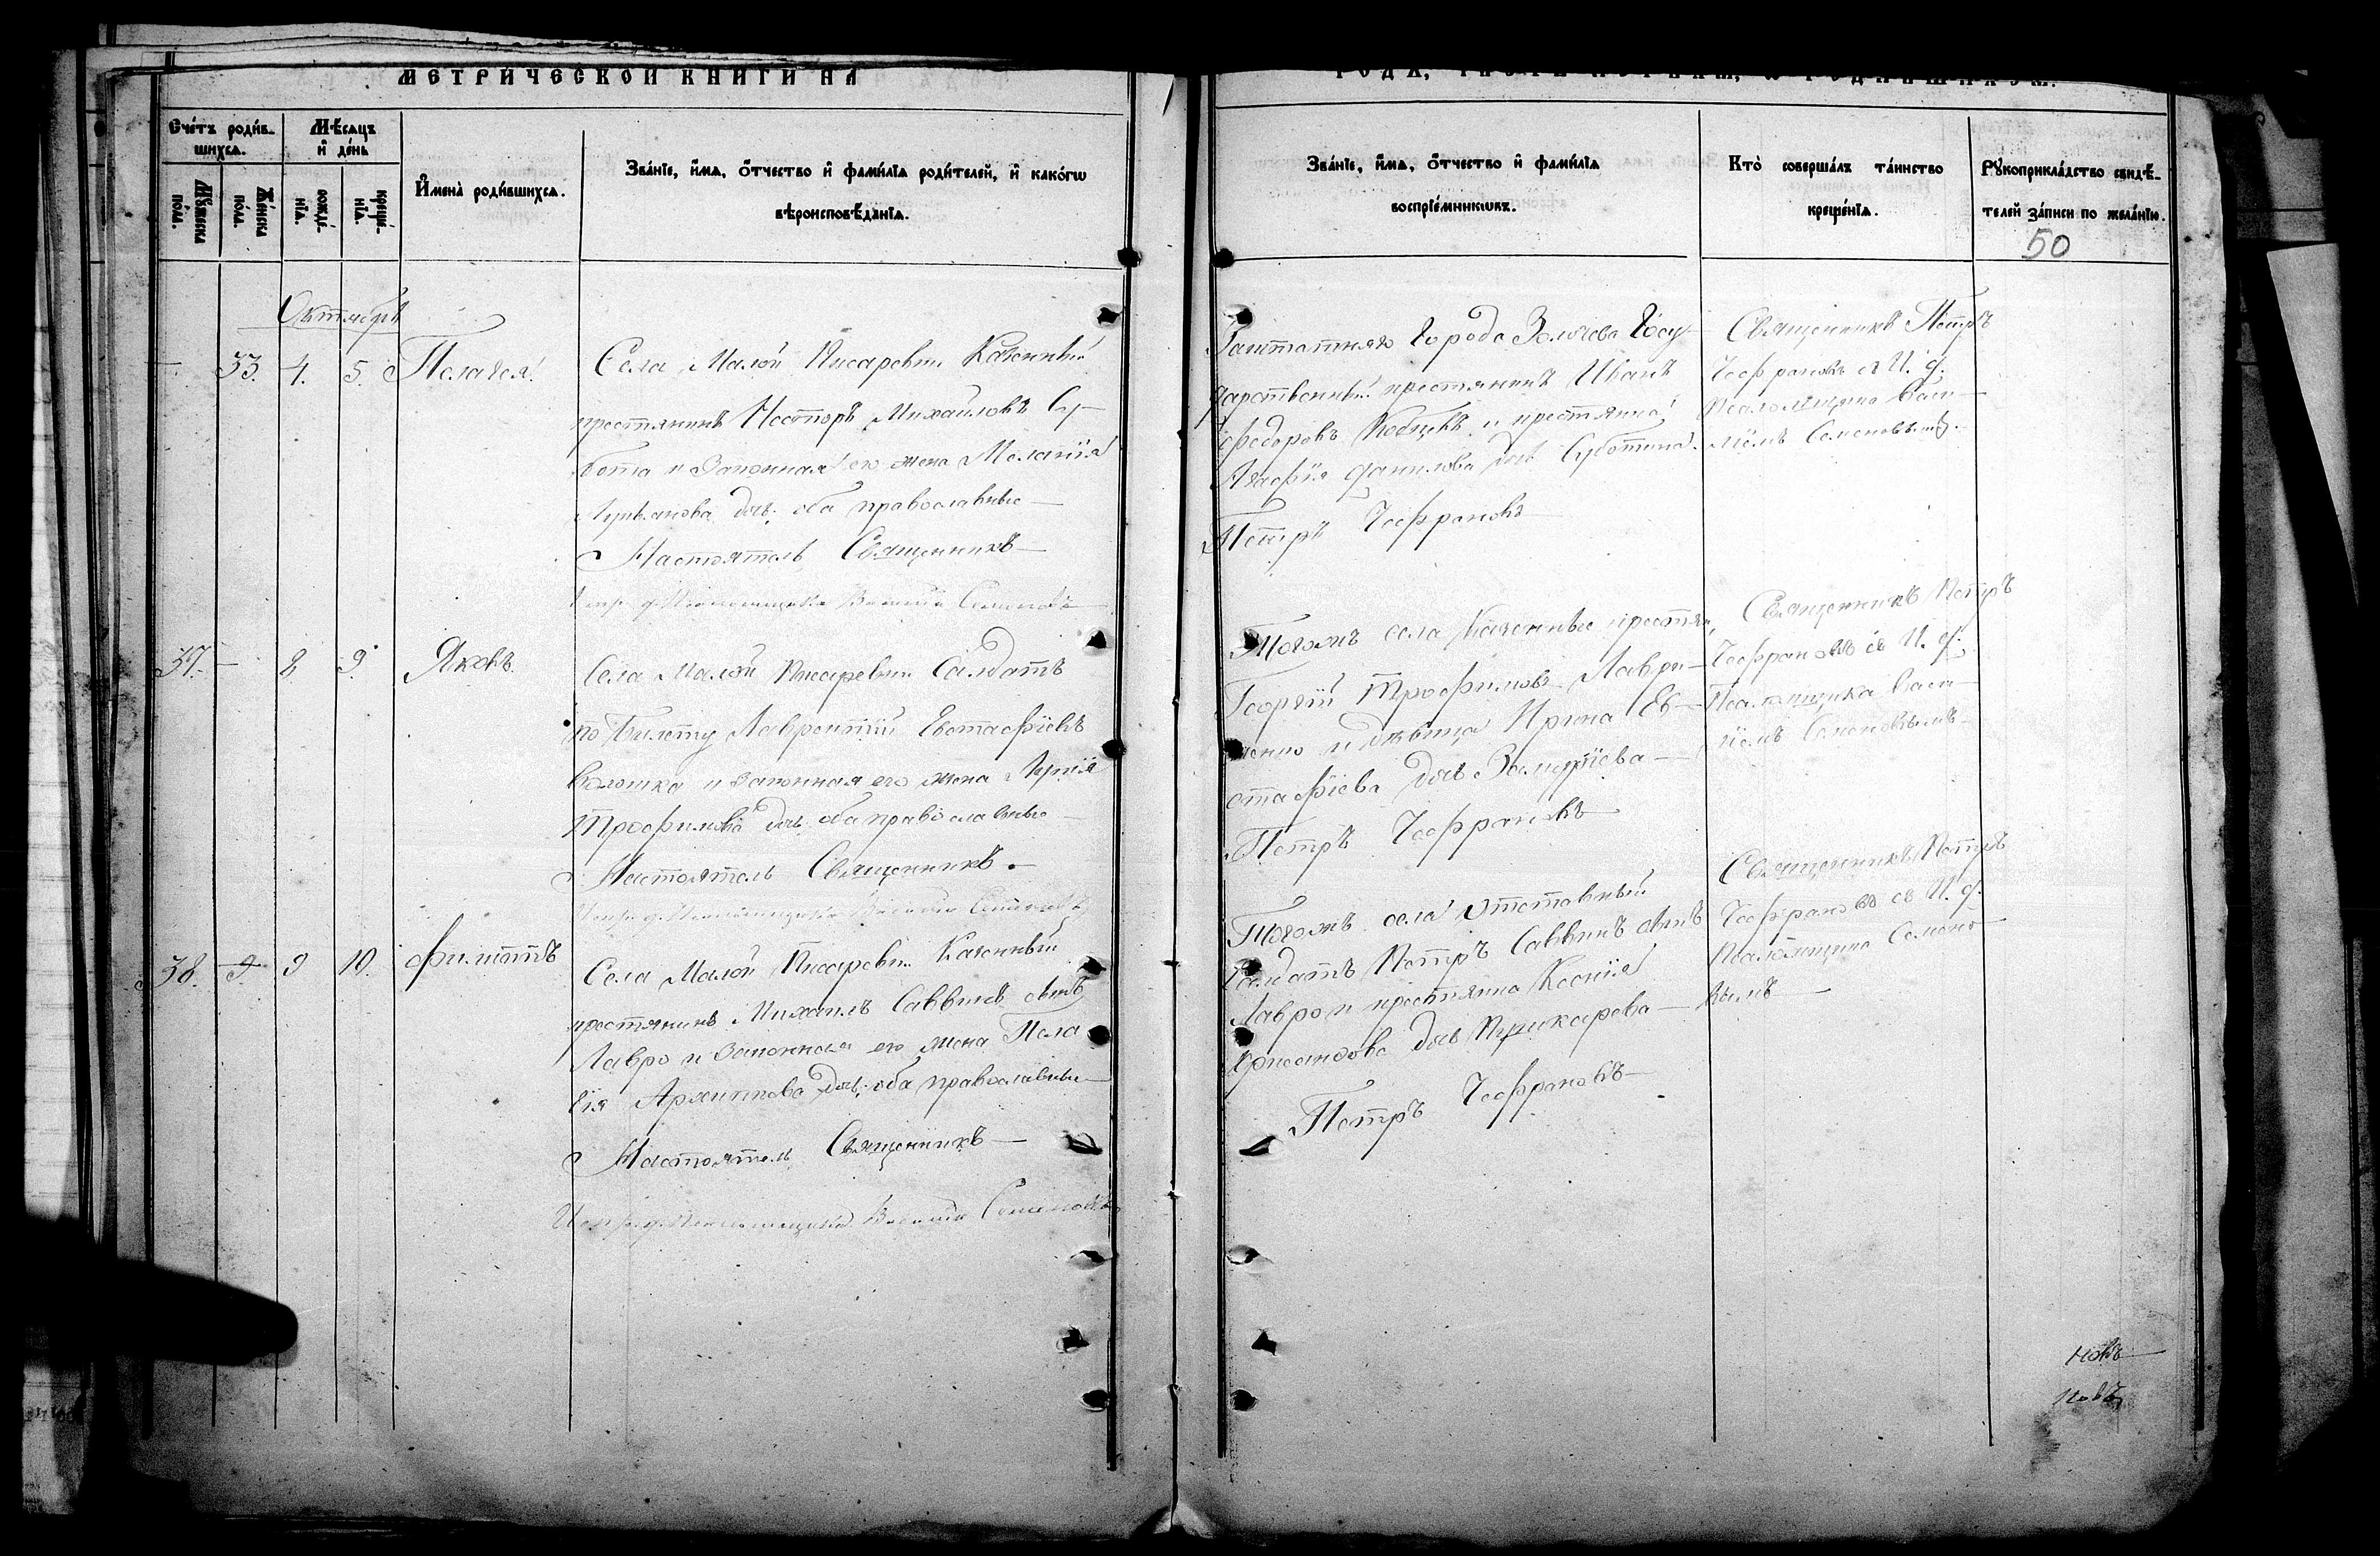 МЕТРИЧЕСКОЙ КНИГИ НА
Счётъ родив-
шихсѧ.
Мѣсѧцъ
и день
Мужеска
пола.
Женска
пола.
рожде-
нїѧ.
креще-
нїѧ.
Имена родившихсѧ.
Званїе, имѧ, отчество и фамилїѧ родителей, и какогѡ
вѣроисповѣданїѧ.
Октябрь
33. 4. 5. Пелагея.
Села Малой Писаревки Казенный
крестьянинъ Несторъ Михайловъ Су-
бота и законная его жена Меланія
Лукьянова дочь; оба православные
Настоятель Священникъ
Псаломщика Василій Семеновъ
37. 8 9. Яковъ.
Села Малой Писаревки Салдатъ
по билету Лаврентій Евстафіевъ
Волошка и законная его жена
Трофимова дочь оба православные
Настоятель Священникъ.
Псаломщика Василій Семеновъ
38. 9 9 10. Филиппъ
Села Малой Писаревки Казенный
крестьянинъ Михаилъ Саввинъ сынъ
Лавро и законная его жена Пела
гія Архипова дочь; оба православные
Настоятель Священникъ
Псаломщика Василій Семеновъ
Званїе, имѧ, отчество и фамилїѧ
воспрїемникѡвъ.
Кто совершалъ таинство
крещенїѧ.
Рукоприкладство свидѣ-
телей записи по желанїю.
50
Заштатняго Города Золочева Госу-
дарственный крестьянинъ Иванъ
Федоровъ и крестьянка
Агафія Данилова дочь Суботина.
Петръ Чефрановъ
Священникъ Петръ
Чефрановъ съ И. д.
Псаломщика Васи-
ліемъ Семеновымъ.
Тогожъ села Казенные крестьян.
Георгій Трофимовъ Лаври-
ненко и дѣвица Ирина Ев-
стафіева дочь
Петръ Чефрановъ
Священникъ Петръ
Чефрановъ съ И. д.
Псаломщика Васи-
ліемъ Семеновымъ
Тогожъ села отставный
Салдатъ Петръ Саввинъ сынъ
Лавро и крестьянка Ксенія
дочь Пушкарева
Петръ Чефрановъ
Священникъ Петръ
Чефрановъ съ И. д.
Псаломщика Семено
вымъ
новъ
новъ